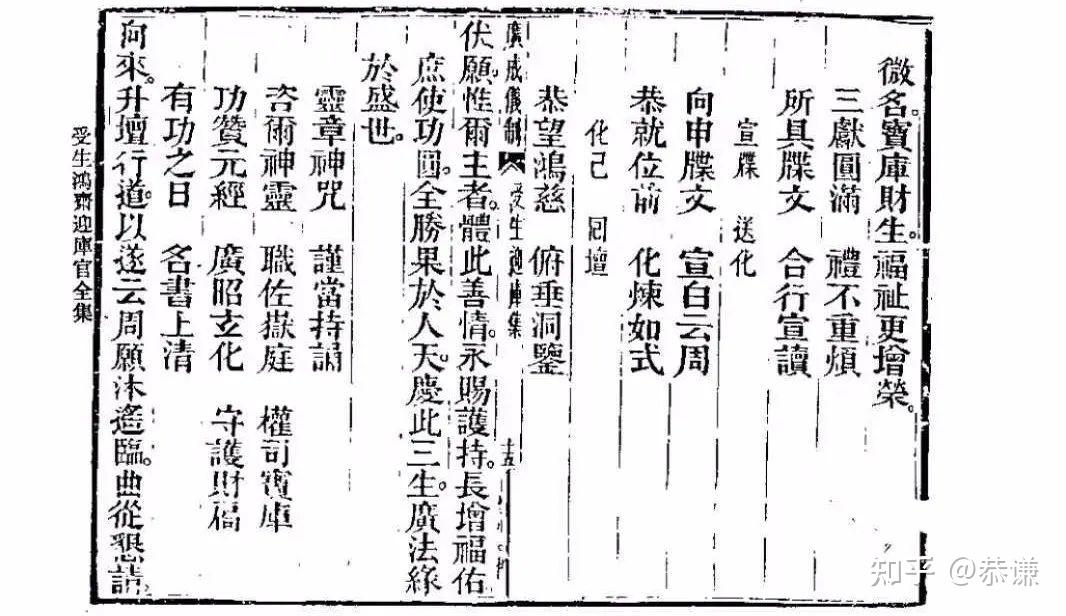 微名。寶庫財生。福祉更增榮。
三獻圓滿 禮不重煩
所具牒文 合行宣讀
宣牒 送化
向申牒文 宣白云周
恭就位前 化煉如式
化已 回壇
恭望鴻慈 俯垂洞鑒
廣成儀制 受生迎庫集 十五
伏願惟爾主者。體此善情。永賜護持。長增福佑
庶使功圓。全勝果於人天。慶此三生。廣法緣
於盛世。
靈章神咒 謹當持誦
咨爾神靈 職佐嶽庭 權司寶庫
功贊元經 廣昭玄化 守護財福
有功之日 名書上清
向來。升壇行道。以遂云周願沐遙臨。曲從懇請。
受生鴻齋迎庫官全集
知乎 @恭谦